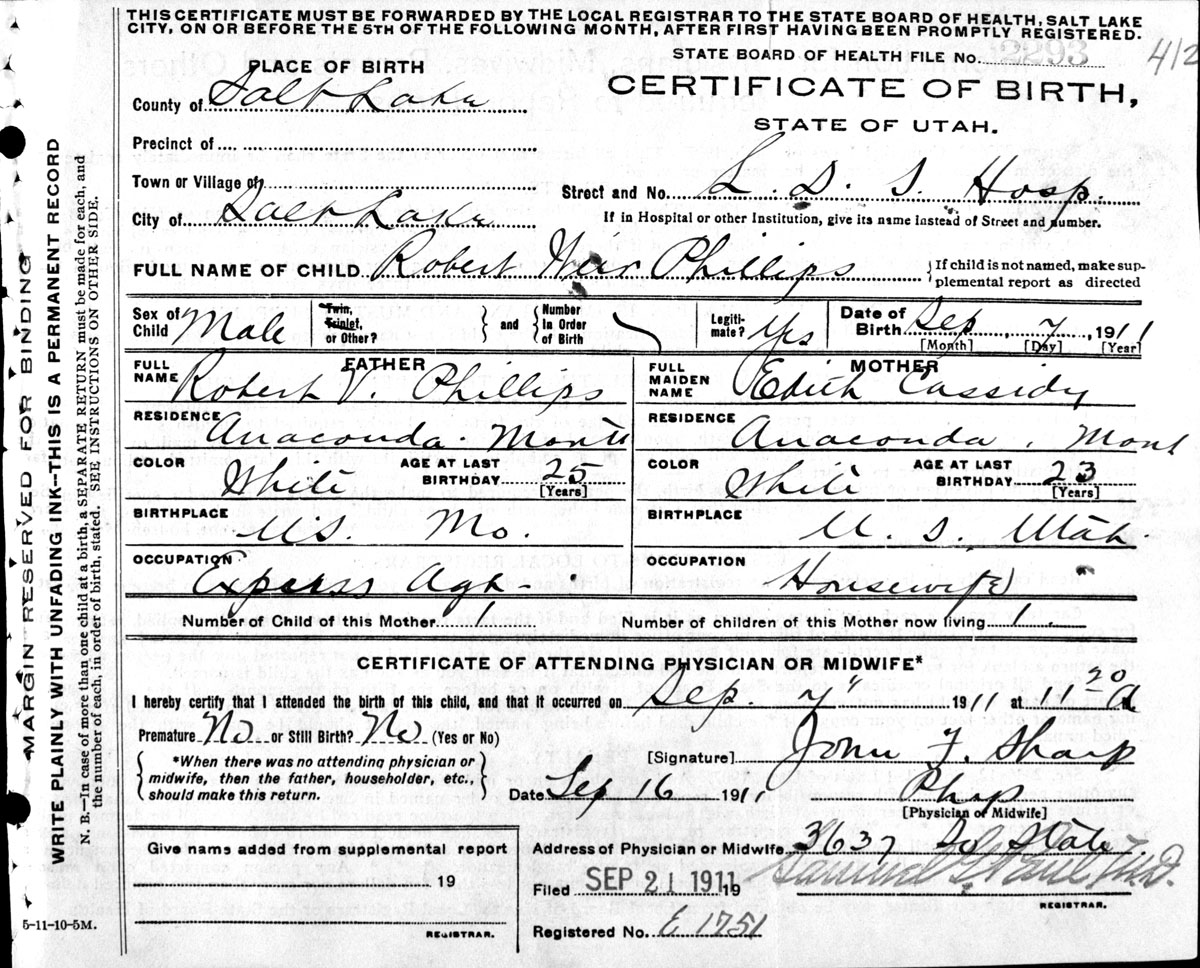 THIS CERTIFICATE MUST BE FORWARDED BY THE LOCAL REGISTRAR TO THE STATE BOARD OF HEALTH, SALT LAKE
CITY, ON OR BEFORE THE 5TH OF THE FOLLOWING MONTH, AFTER FIRST HAVING BEEN PROMPTLY REGISTERED.
STATE BOARD OF HEALTH FILE No. 2293
412
PLACE OF BIRTH
CERTIFICATE OF BIRTH,
STATE OF UTAH.
County of Salt Lake
Precinct of
Town or Village of
Street and No. L. D. S. Hosp.
City of Salt Lake
If in Hospital or other Institution, give its name instead of Street and number.
FULL NAME OF CHILD Robert Weir Phillips
If child is not named, make sup-
plemental report as directed
Sex of Child Male
Twin, Triplet, or Other?
and
Number in Order of Birth
Legiti-mate? Yes
Date of Birth Sep 7, 1911
[Month] [Day] [Year]
FATHER
FULL NAME Robert V. Phillips
MOTHER
FULL MAIDEN NAME Edith Cassidy
RESIDENCE Anaconda. Mont
RESIDENCE Anaconda, Mont
COLOR White
AGE AT LAST BIRTHDAY 25
[Years]
COLOR White
AGE AT LAST BIRTHDAY 23
[Years]
BIRTHPLACE U.S. Mo.
BIRTHPLACE U. S. Utah
OCCUPATION Express Agt
OCCUPATION Housewife
Number of Child of this Mother 1
Number of children of this Mother now living 1
CERTIFICATE OF ATTENDING PHYSICIAN OR MIDWIFE*
I hereby certify that I attended the birth of this child, and that it occurred on Sep. 7" 1911 at 11 20 A
Premature No or Still Birth? No (Yes or No)
*When there was no attending physician or
midwife, then the father, householder, etc.,
should make this return.
[Signature] John F. Sharp
Date Sep 16 191
[Physician or Midwife]
Give name added from supplemental report
19
REGISTRAR.
Address of Physician or Midwife 3637 So State
Filed SEP 21 1911 19
REGISTRAR.
Registered No. E 1751
5-11-10-5M.
MARGIN RESERVED FOR BINDING
WRITE PLAINLY WITH UNFADING INK--THIS IS A PERMANENT RECORD
N. B.--In case of more than one child at a birth, a SEPARATE RETURN must be made for each, and
the number of each, in order of birth, stated. SEE INSTRUCTIONS ON OTHER SIDE.